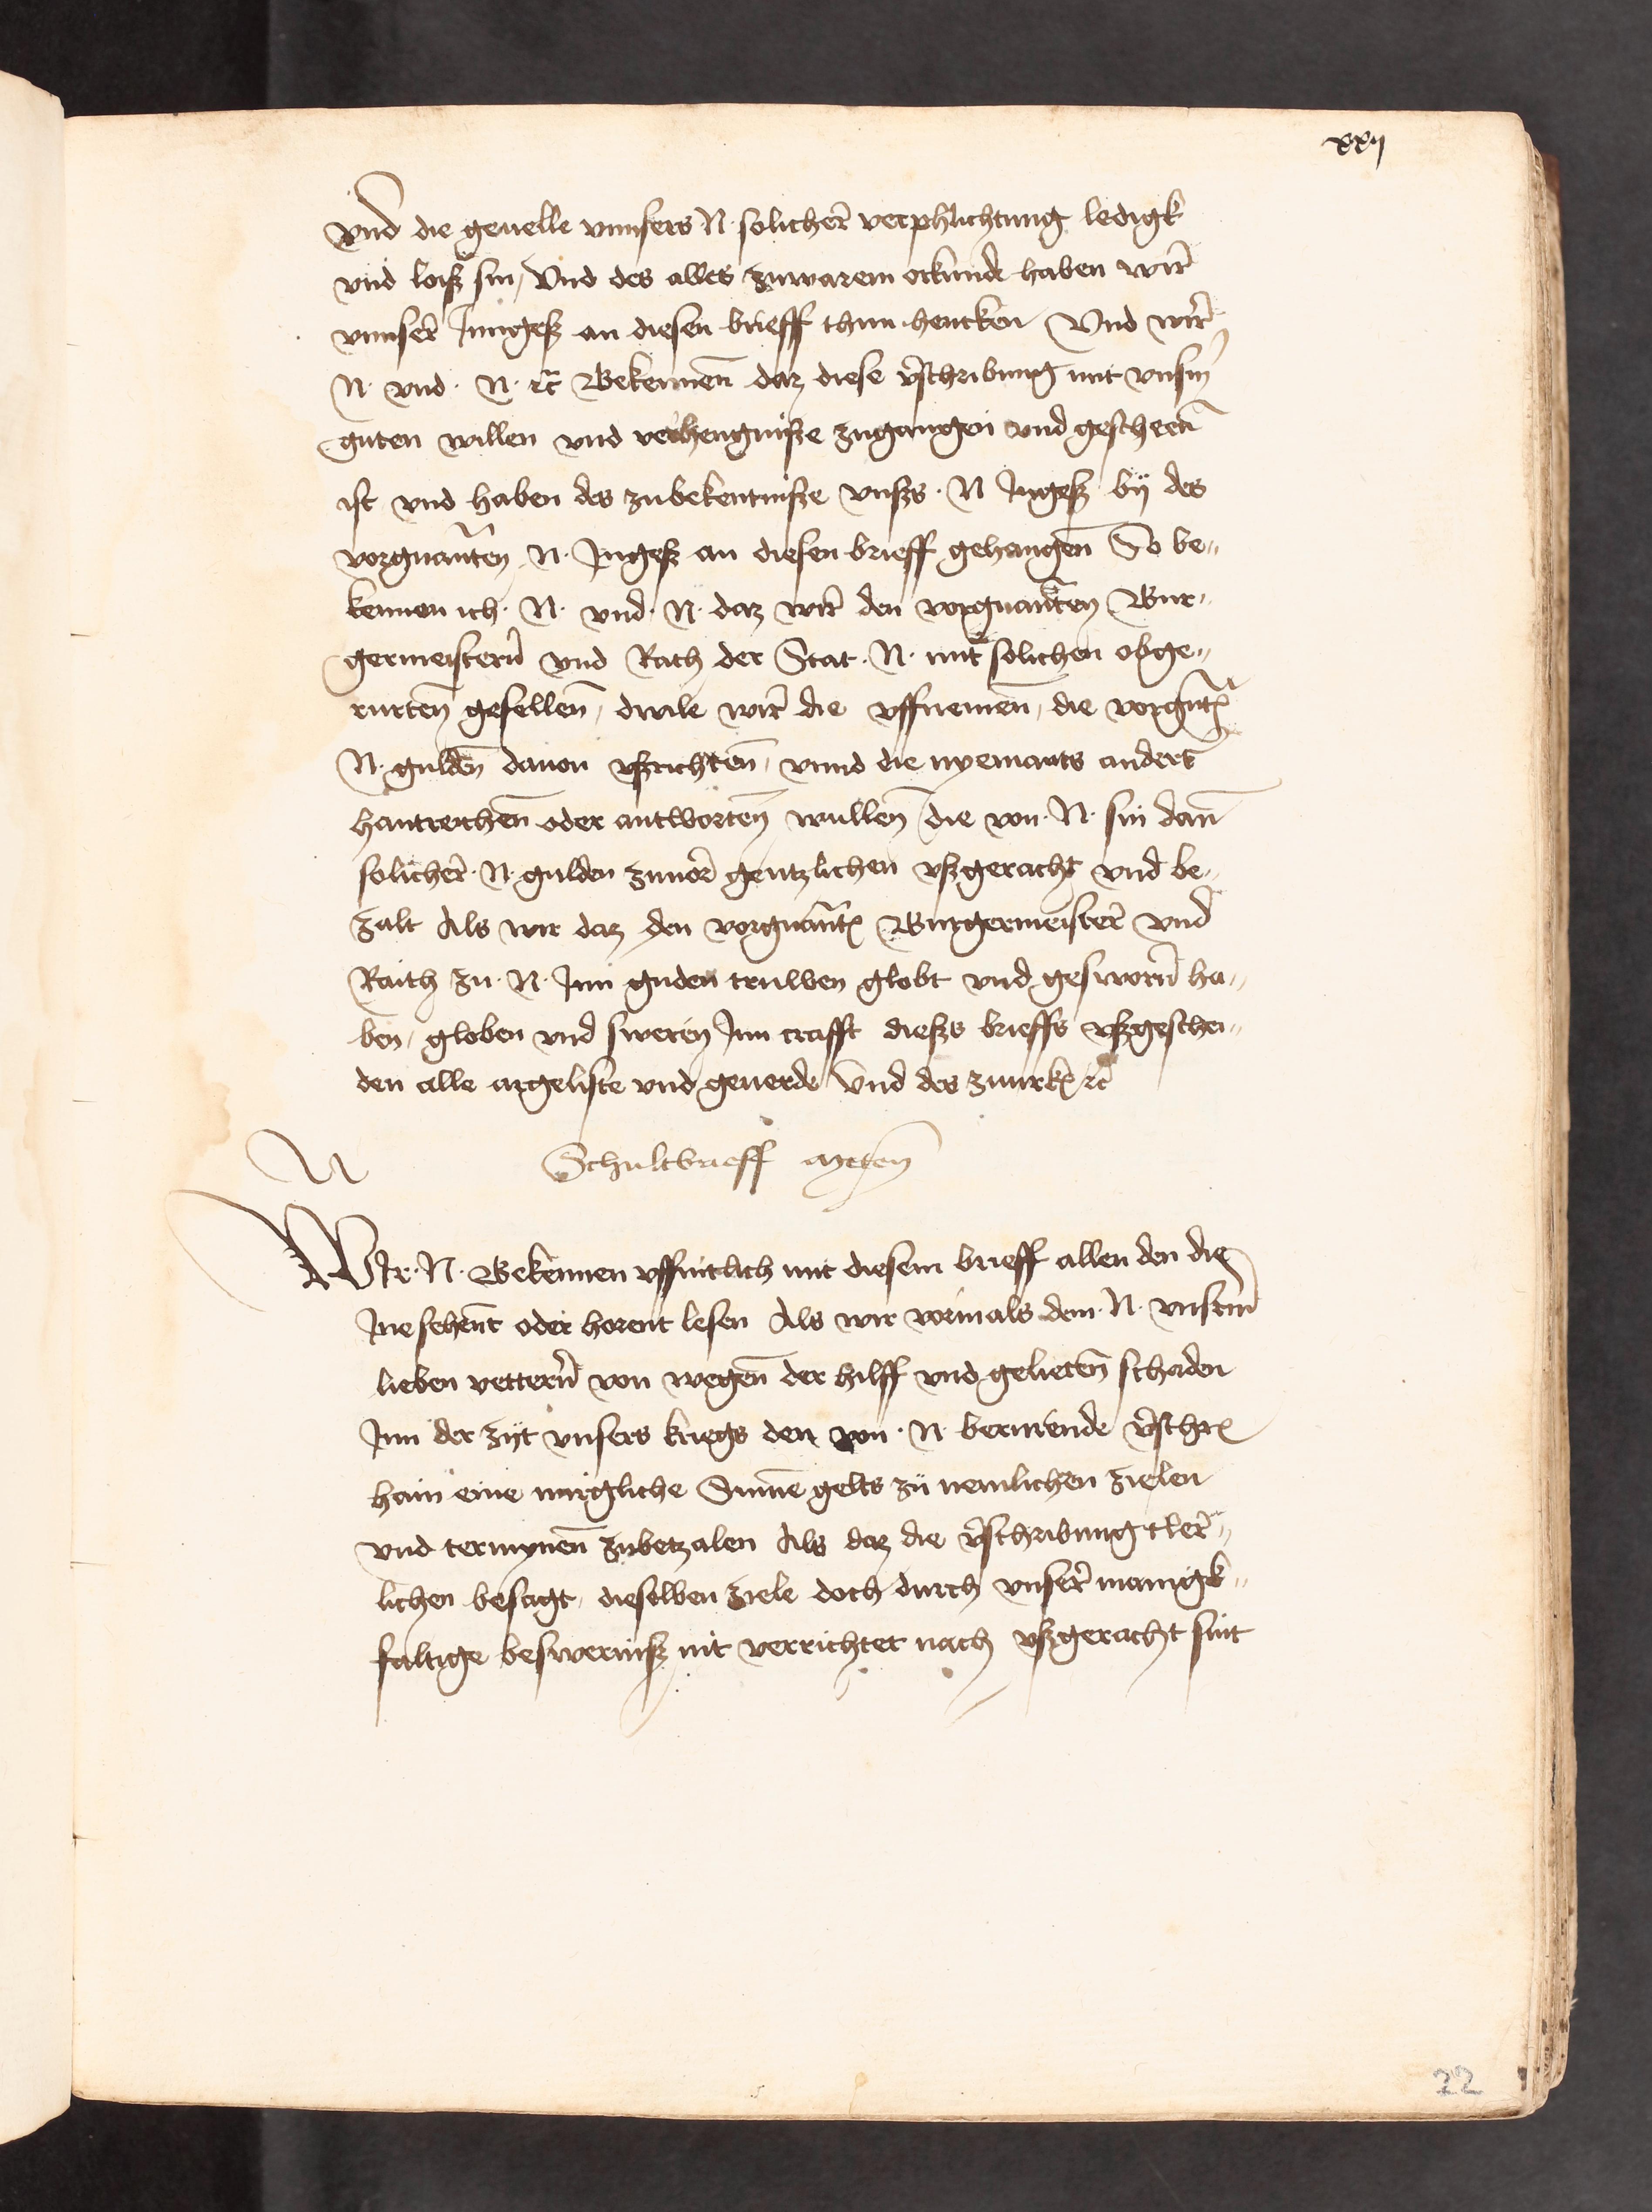 xxij
vnd die geuelle vnnsers N solicher verphlichtung ledigk
vnd loiß sin, Vnd des alles zuwarem orkunde haben wir
vnnser Inngeß an diesen brieff thun hencken Vnd wir
N. vnd. N. etc Bekennen daz diese vschribung mit vnsm
guten willen vnd verhengniße zugangen vnd gescheen
ist vnd haben des zubekentniße vnßs. N Ingeß by des
vorgnanten N. Ingeß an diesen brieff gehangen So be„
kennen ich. N. vnd. N. daz wir den vorgnanten Bur„
germeistern vnd Rath der Stat. N. mit solichen obge„
rurten gesellen, diwile wir die vffnemen, die vorgnt
N. gulden dauon vßrichten, vnnd die nyemants anders
hantreichen oder antworten wullen die von. N. sin dan
solicher. N. gulden zuuor gentzlichen vßgeracht vnd be„
zalt Als wir daz den vorgnant Burgermeister vnd
Raith zu. N. Inn guden truwen globt vnd gesworn ha„
ben, globen vnd sweren Inn crafft dießs brieffs vßgeschei„
den alle argeliste vnd geuerde Vnd des zuurk etc
Schultbrieff
Wir. N. Bekennen vffintlich mit diesem brieff allen den die
Ine sehent oder horent lesen Als wir vormals dem. N. vnserm
lieben vettern von wegen der hilff vnd gelieten schaden
Inn der zijt vnsers kriegs den von. N. berurende vschr
hain eine mirgliche Summe gelts zu nemlichen zielen
vnd termynen zubetzalen Als daz die vschribung cler„
lichen besagt, dieselben ziele doch durch vnser manigk„
faltige beswerniß nit verrichtet nach vßgeracht sint
22